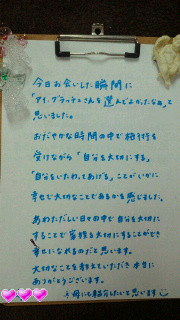 今日お会いした瞬間に
「アイ・グラッチェさんを選んでよかったなぁ」と
思いました。
おだやかな時間の中で施術を
受けながら「自分を大切にする」
「自分をいたわってあげる」ことがいかに
幸せで大切なことであるかを感じました。
あわただしい日々の中で自分を大切に
することで家族を大切にすることができ
幸せになれるのだと思います。
大切なことを教えていただき本当に
ありがとうございます。
母にも紹介したいと思います